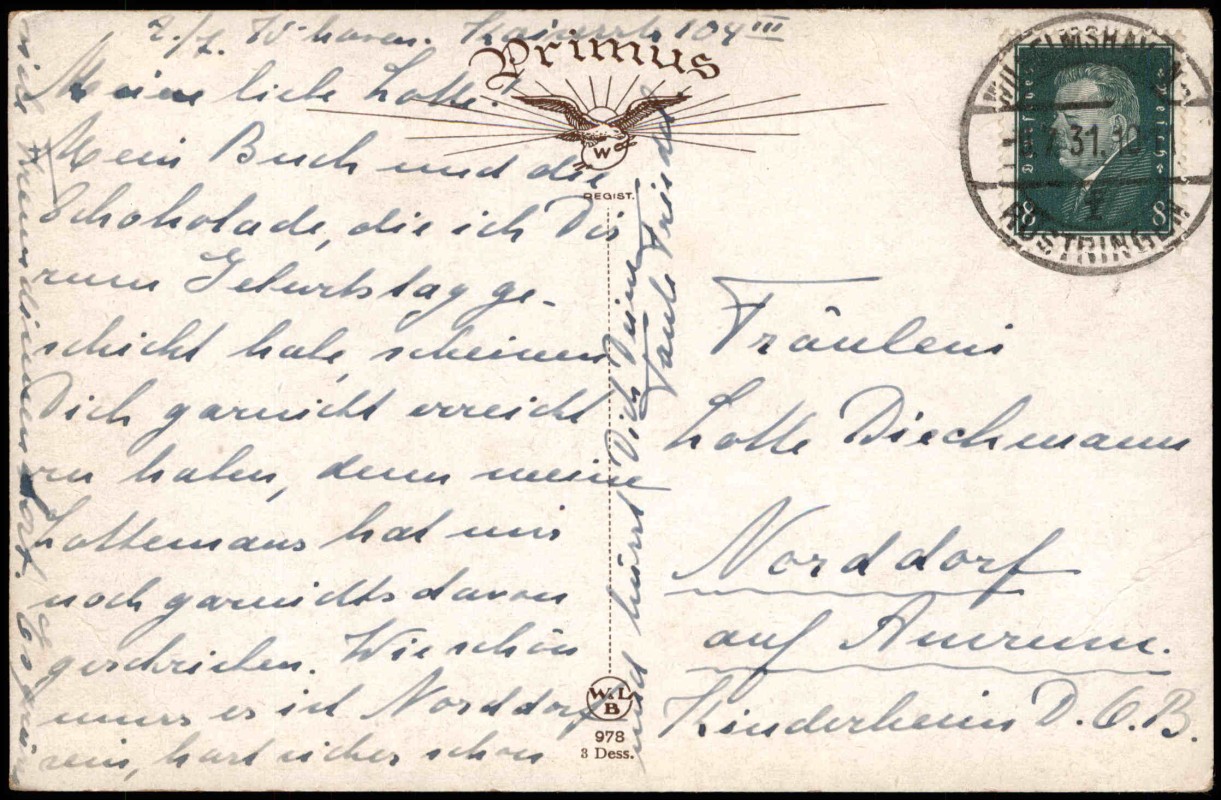 2./7. W'haven. Kaiserstr 104 III
Primus
Meine liebe Lotte!
Mein Buch und die
Schokolade, die ich Dir
zum Geburtstag ge-
schickt habe, scheinen
Dich garnicht erreicht
zu haben, denn meine
Lottemaus hat mir
noch garnichts davon
geschrieben. Wie schön
muss es in Norddorf
sein, hast sicher schon
viele Freundinnen dort. Es
und küsst Dich Deine
Tante Frieda
W
REGIST.
W.L.
B
978
3 Dess.
WILHELMSHAVEN
7.31.10
RÜSTRINGEN
Deutsches Reich
8 8
Fräulein
Lotte Diechmann
Norddorf
auf Amrum.
Kinderheim D.O.B.